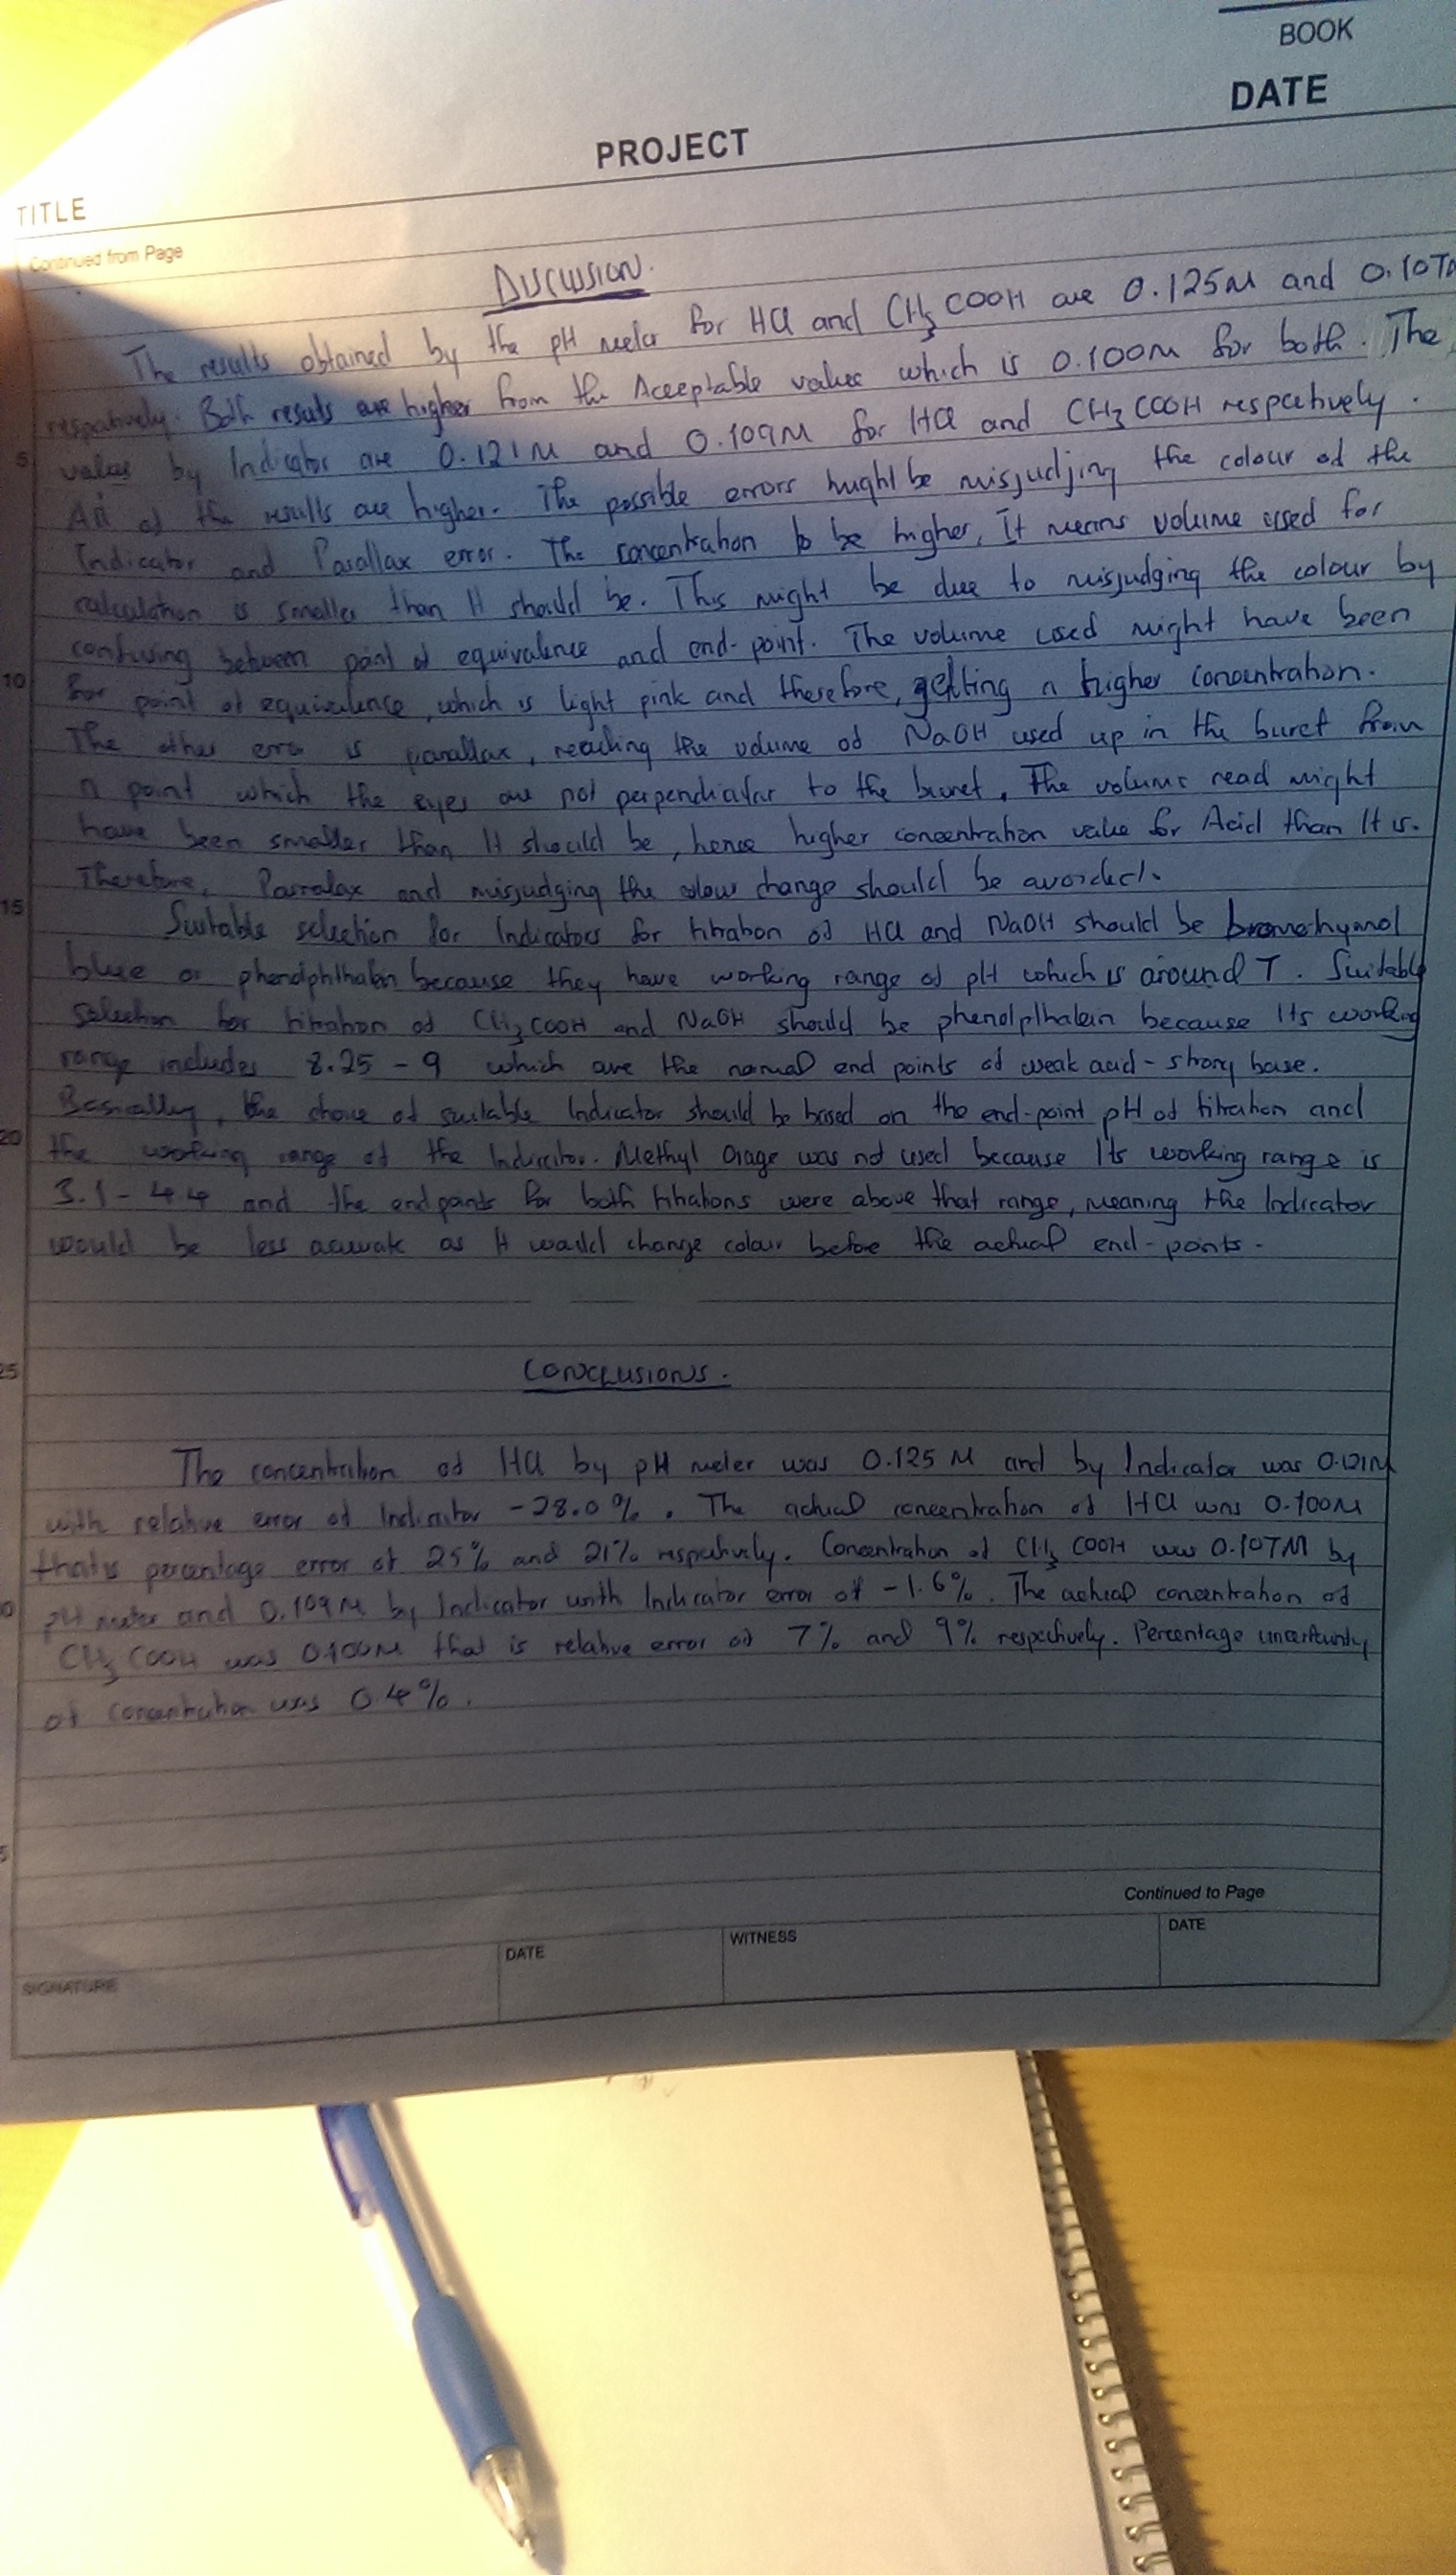 BOOK
DATE
PROJECT
TITLE
Continued from Page
DISCUSSION.
The results obtained by the pH meter for HCl and CH3COOH are 0.125M and 0.107M
respectively. Both results are higher from the Acceptable value which is 0.100M for both. The
5 values by Indicator are 0.121M and 0.109M for HCl and CH3COOH respectively.
All of the results are higher. The possible errors might be misjudjing the colour of the
Indicator and Parallax error. The concentration to be higher, It means volume used for
calculation is smaller than It should be. This might be due to misjudging the colour by
confusing between point of equivalence and end-point. The volume used might have been
10 for point of equivalence, which is light pink and therefore, getting a higher concentration.
The other error is parallax, reading the volume of NaOH used up in the buret from
a point which the eyes are not perpendicular to the buret. The volume read might
have been smaller than It should be, hence higher concentration value for Acid than It is.
Therefore, Parralax and misjudging the colour change should be avoided.
15 Suitable selection for Indicators for titration of HCl and NaOH should be bromothymol
blue or phenolphthalein because they have working range of pH which is around 7. Suitable
selection for titration of CH3COOH and NaOH should be phenolphthalein because Its working
range includes 8.25 - 9 which are the normal end points of weak acid - strong base.
Basically, the choice of suitable Indicator should be based on the end-point pH of titration and
20 the working range of the Indicator. Methyl Orage was not used because Its working range is
3.1 - 4.4 and the endpoints for both titrations were above that range, meaning the Indicator
would be less accurate as It would change colour before the actual end-points.
25 CONCLUSIONS.
The concentration of HCl by pH meter was 0.125 M and by Indicator was 0.121M
with relative error of Indicator -28.0%. The actual concentration of HCl was 0.100M
thats percentage error of 25% and 21% respectively. Concentration of CH3COOH was 0.107M by
pH meter and 0.109M by Indicator with Indicator error of -1.6%. The actual concentration of
CH3COOH was 0.100M that is relative error of 7% and 9% respectively. Percentage uncertainty
of concentration was 0.4%.
Continued to Page
SIGNATURE
DATE
WITNESS
DATE